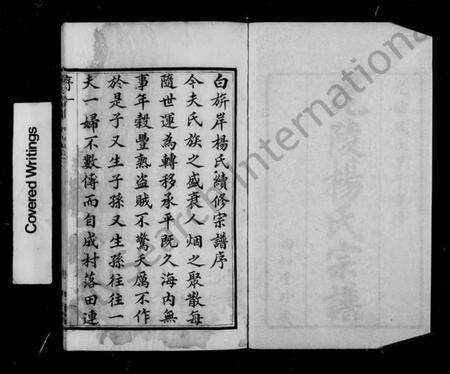 白旂岸楊氏續修宗譜序
今夫氏族之盛衰人烟之聚散每
隨世運為轉移承平既久海內無
事年穀豐熟盜賊不驚天厲不作
於是子又生子孫又生孫往往一
夫一婦不數傳而自成村落田連
序 一
Covered Writings
International